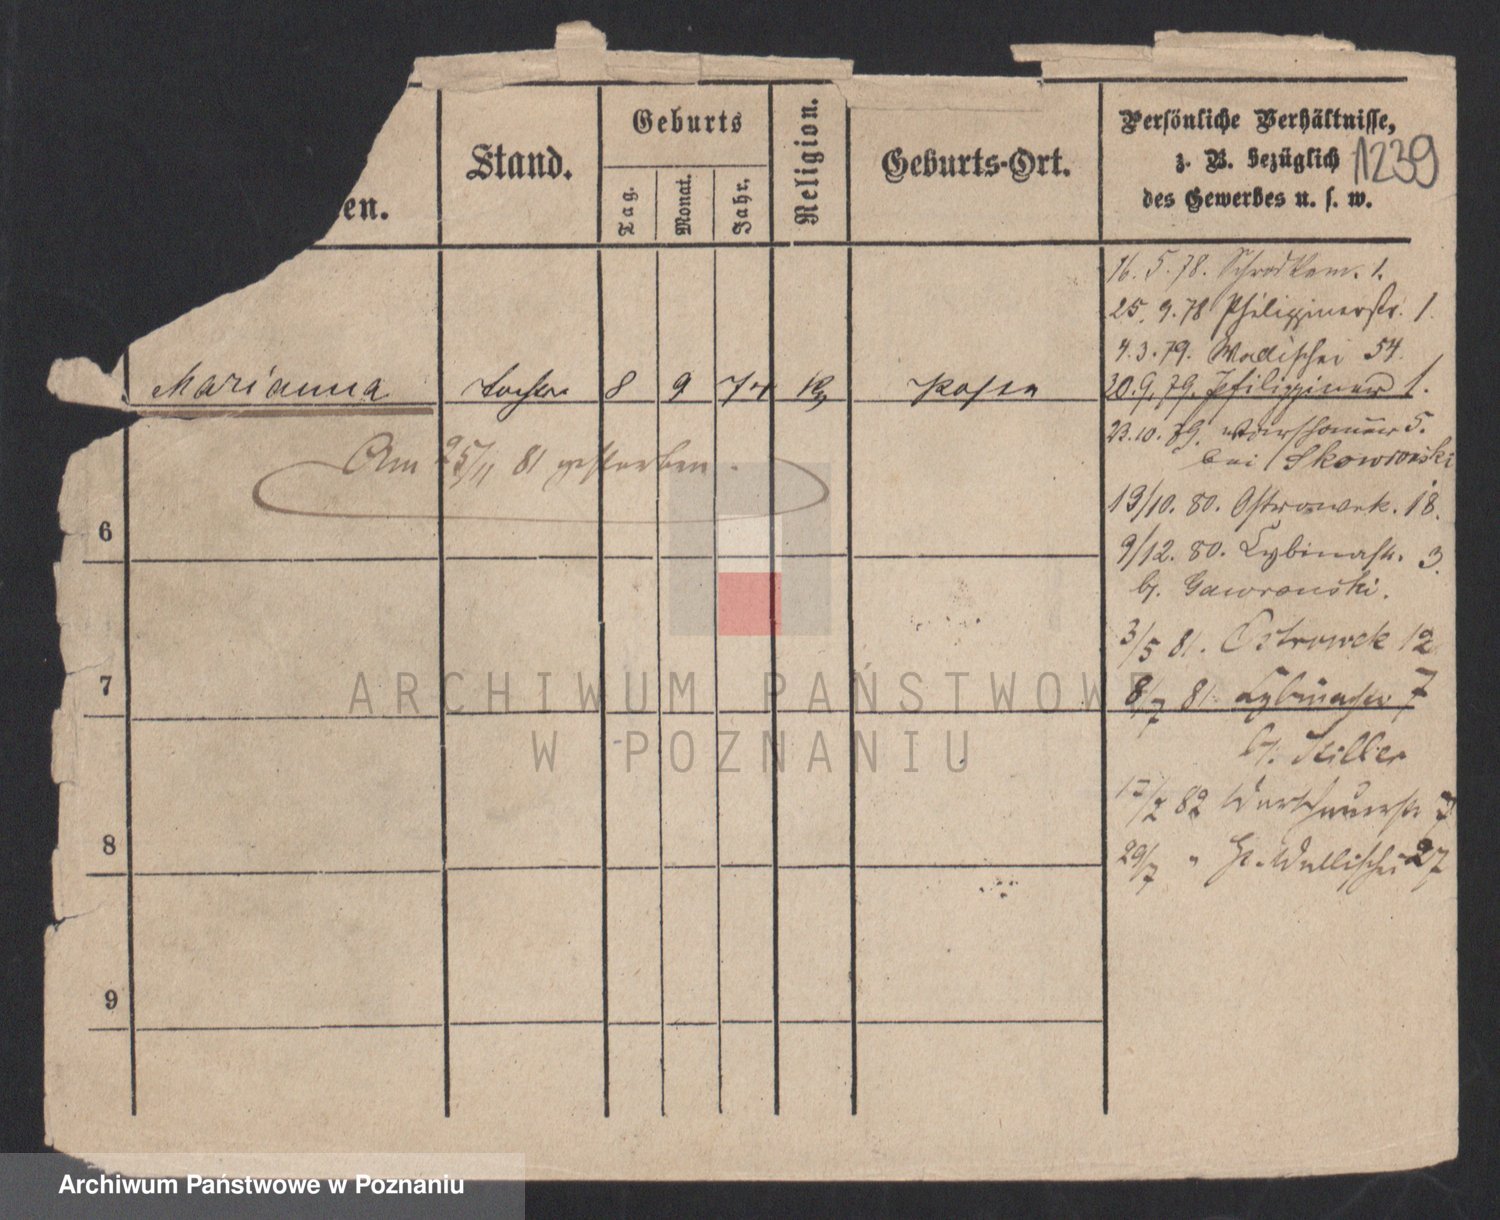 en.
Stand.
Geburts
Tag.
Monat.
Jahr.
Religion.
Geburts-Ort.
Persönliche Verhältnisse,
z. B. bezüglich
des Gewerbes u. s. w.
1239
16. 5. 78. 1.
25. 9. 78 Philippinerstr. 1.
4. 3. 79. Wallischei 54.
Marianna Tochter 8 9 74 Posen
20. 9. 79. Philippiner 1.
23. 10. 79. Warschauer 5.
bei Skowronski
Am 25/11 81 gestorben.
19/10. 80. Ostrowek. 18.
6
9/12. 80. Cybinastr. 3.
b. Gawronski.
3/5 81. Ostrowek 12
7
8/7 81. Cybinastr 7
b.
ARCHIWUM PAŃSTWOWE
W POZNANIU
/2 82 Warschauerstr 7
8
29/7 " Wallischei 27
9
Archiwum Państwowe w Poznaniu